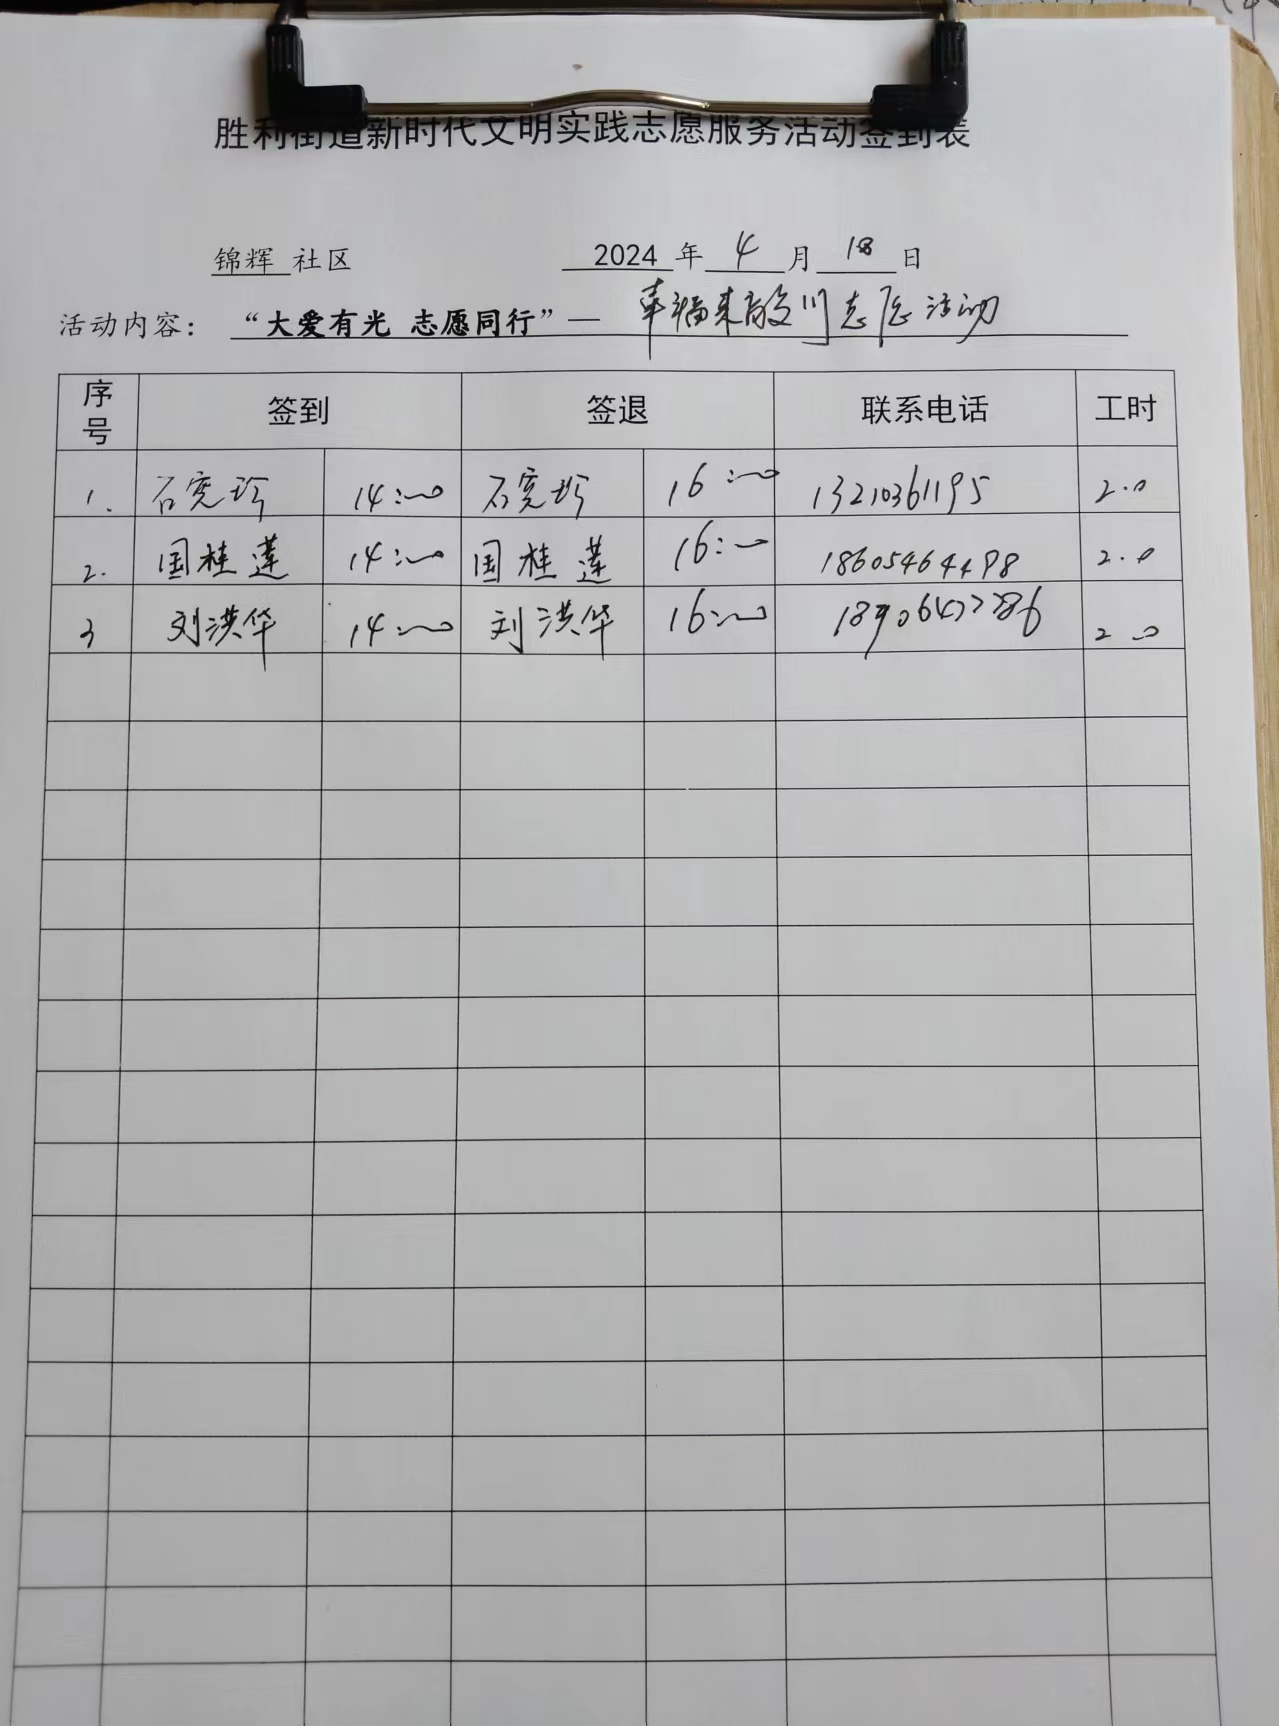 胜利街道新时代文明实践志愿服务活动签到表
锦辉 社区 2024 年 4 月 18 日
活动内容： “大爱有光 志愿同行”— 幸福来敲门志愿活动
序号 签到 签退 联系电话 工时
1. 石宪珍 14:00 石宪珍 16:00 13210361195 2.0
2. 国桂莲 14:00 国桂莲 16:00 18605464498 2.0
3 刘洪华 14:00 刘洪华 16:00 2.0